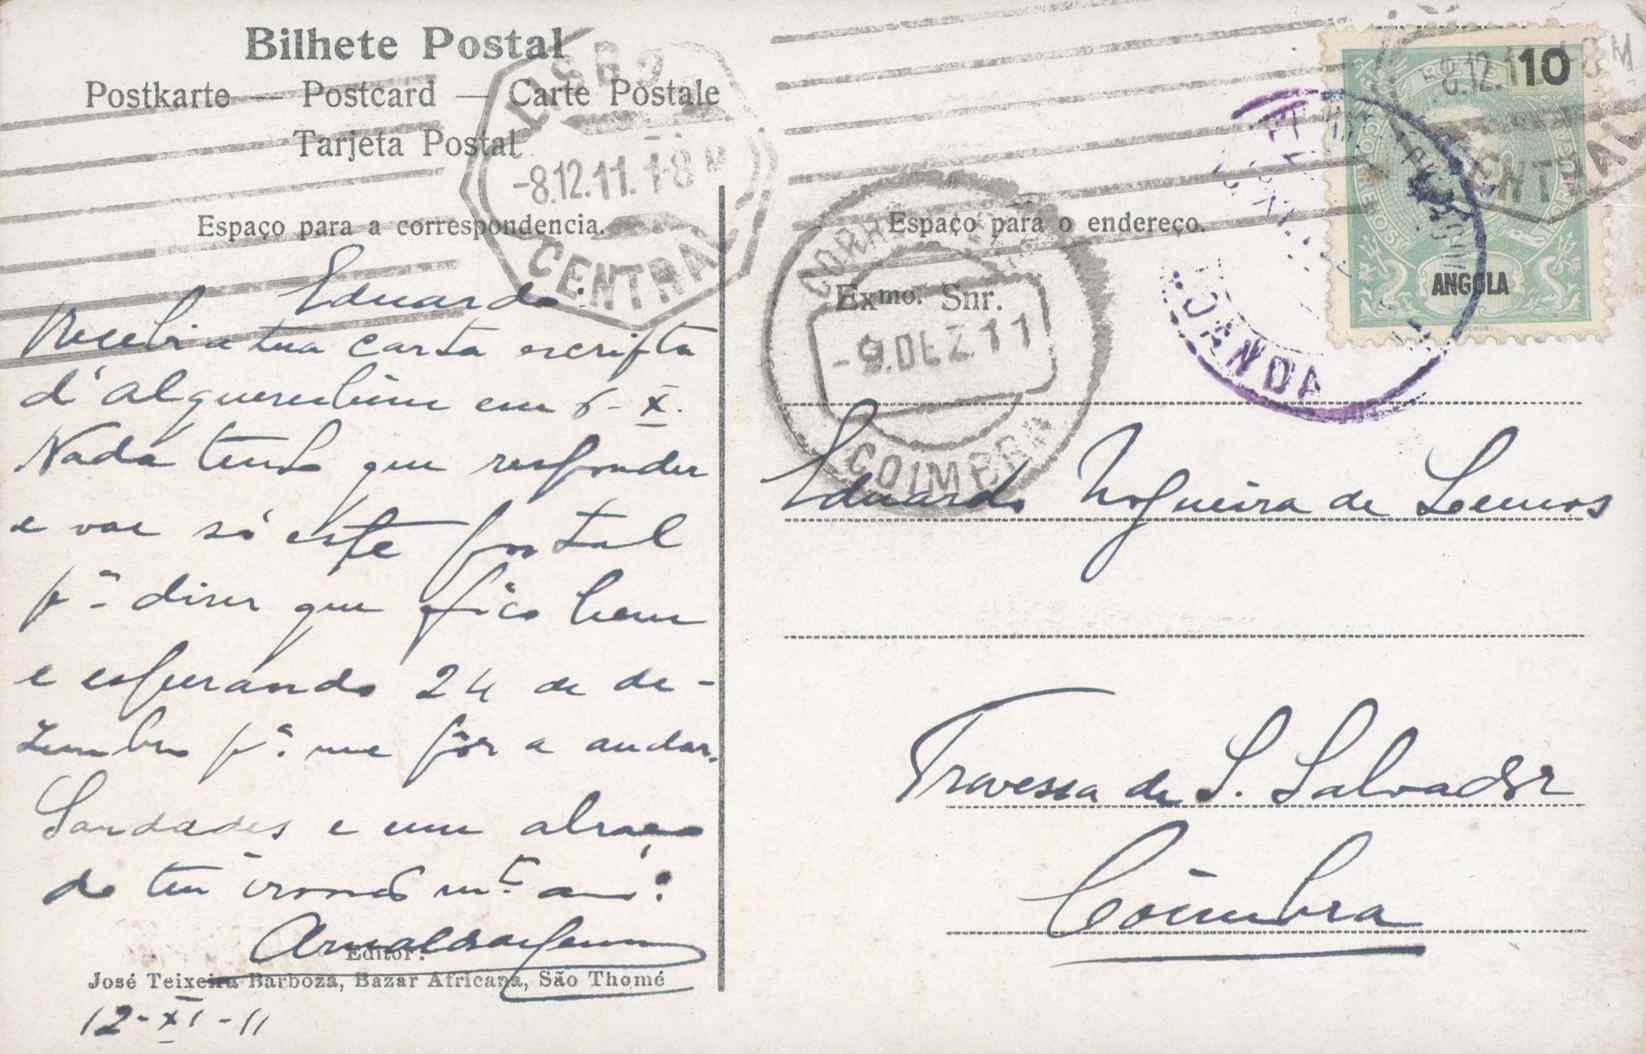 Bilhete Postal
Postkarte — Postcard — Carte Postale
Tarjeta Postal
Espaço para a correspondencia.
Eduardo
Recebi a tua carta escripta
d'Alquerubim em 6-X.
Nada tenho que responder
e vae só este postal
pª dizer que fico bem
e esperando 24 de de-
zembro pª me pôr a andar.
Saudades e um abraço
do teu irmão mtº amº
Arnaldo
Editor:
José Teixeira Barboza, Bazar Africana, São Thomé
12-XI-11
LISBO
-8.12.11. 1-8 M
CENTRAL
Espaço para o endereço.
Exmo. Snr.
Eduardo Nogueira de Lemos
Travessa de S. Salvador
Coimbra
CORR
-9.DEZ.11
COIMBRA
LOANDA
10
ANGOLA
8.12.1
CENTRAL